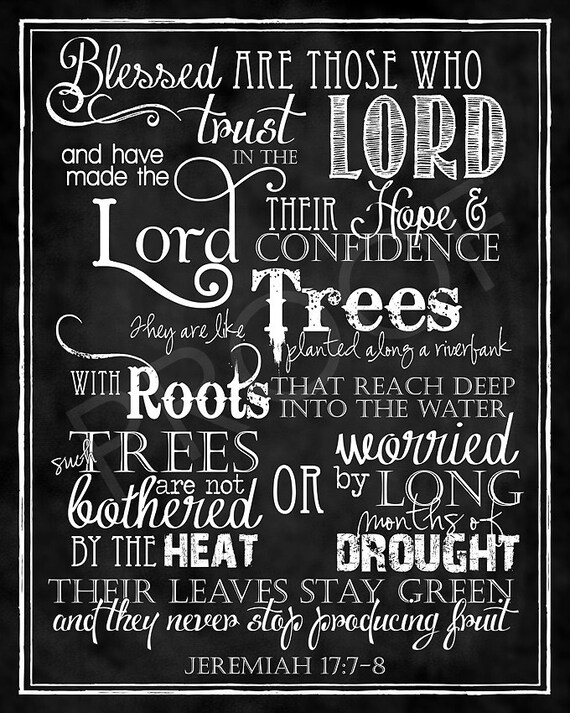 Blessed ARE THOSE WHO
trust IN THE LORD
and have
made the
Lord THEIR Hope &
CONFIDENCE
They are like Trees
planted along a riverbank
WITH Roots THAT REACH DEEP
INTO THE WATER
such TREES
are not
bothered
BY THE HEAT
OR
worried
by LONG
months of
DROUGHT
THEIR LEAVES STAY GREEN
and they never stop producing fruit
JEREMIAH 17:7-8
PROOF